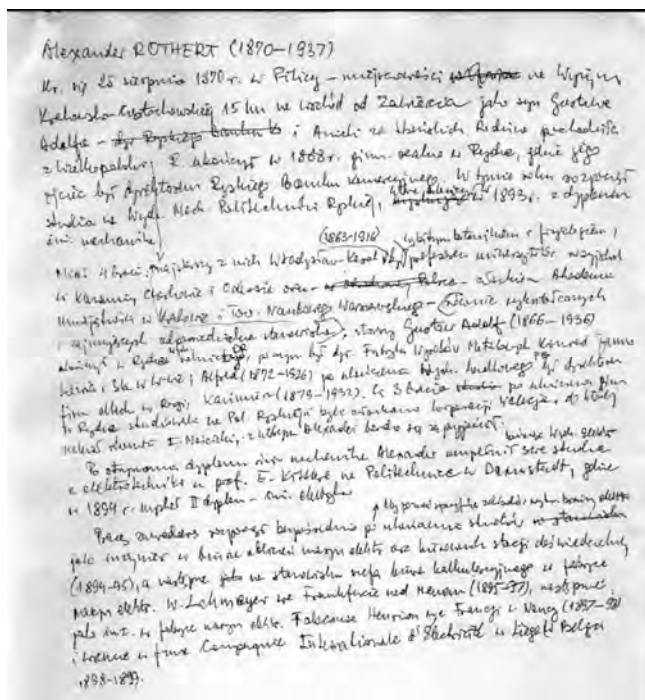 Alexander ROTHERT (1870–1937)
Ur. się 25 sierpnia 1870 r. w Pilicy – miejscowości na Wyżynie
Krakowsko-Częstochowskiej 15 km na wschód od Zawiercia jako syn Gustawa
Adolfa – i Anieli za Rodzina pochodziła
z Wielkopolski. R. ukończył w 1888 r. gimn. realne w Rydze, gdzie jego
ojciec był dyrektorem Ryskiego Banku Komercyjnego. W tymże roku rozpoczął
studia na Wydz. Mech. Politechniki Ryskiej, które ukończył w 1893 r. z dyplomem
inż. mechanika
(1863–1916)
Miał 4 braci, najstarszy z nich Władysław Karol był wybitnym botanikiem i fizjologiem, profesorem uniwersytetów
w Kazaniu, Charkowie i Odessie oraz członkiem Akademii
Umiejętności w Krakowie i Tow. Naukowego Warszawskiego –
i zajmujących odpowiedzialne stanowiska, starszy Gustaw Adolf (1866–1936)
ukończył w Rydze był dyr. Fabryka Wyrobów Metalowych Konrad Jarnuszkiewicz
i Ska w W-wie; Alfred (1872–1926) po ukończeniu Wydz. był dyrektorem
firm w Rosji, Kazimierz (1875–1932). Ci 3 bracia po ukończeniu gimn.
w Rydze studiowali na Pol. Ryskiej i byli członkami korporacji Welecja, do której
należał również I. Mościcki, z którym Alexander bardzo się zaprzyjaźnił.
Po otrzymaniu dyplomu inż. mechanika Alexander uzupełnił swe studia
z elektrotechniki u prof. E. Kittlera na Politechnice w Darmstadt, gdzie
w 1894 r. uzyskał II dyplom – inż. elektryka
Pracę zawodową rozpoczął bezpośrednio po ukończeniu studiów
jako inżynier w biurze obliczeń maszyn elektr. oraz kierownik stacji doświadczalnej
(1894–95), a następnie jako na stanowisku szefa biura kalkulacyjnego w fabryce
maszyn elektr. W. Lahmayer we Frankfurcie nad Menem (1895–97), następnie
jako inż. w fabryce maszyn elektr. Fabrausse Henrion we Francji w Nancy (1897–98)
i wreszcie w firmie Compagnie Internationale d'Electricité w Liège w Belgii
1898–1899.